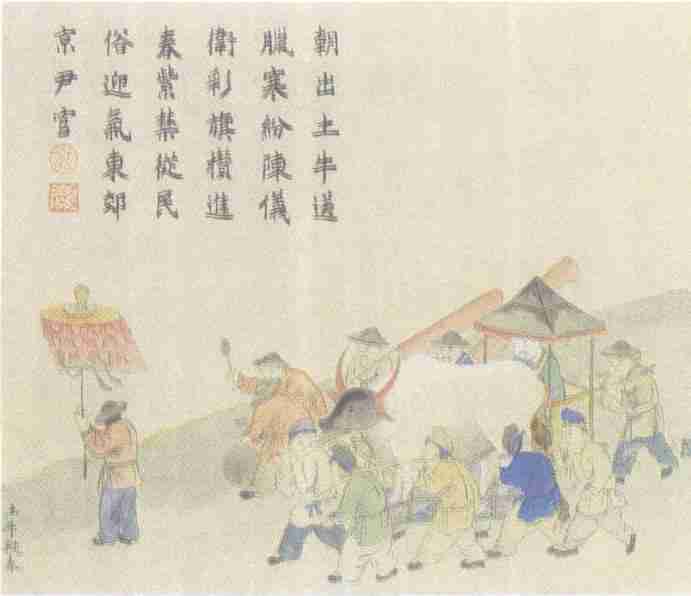 朝出土牛送
臘寒紛陳儀
衛彩旗攢進
春紫禁從民
俗迎氣東郊
京尹官
土牛春